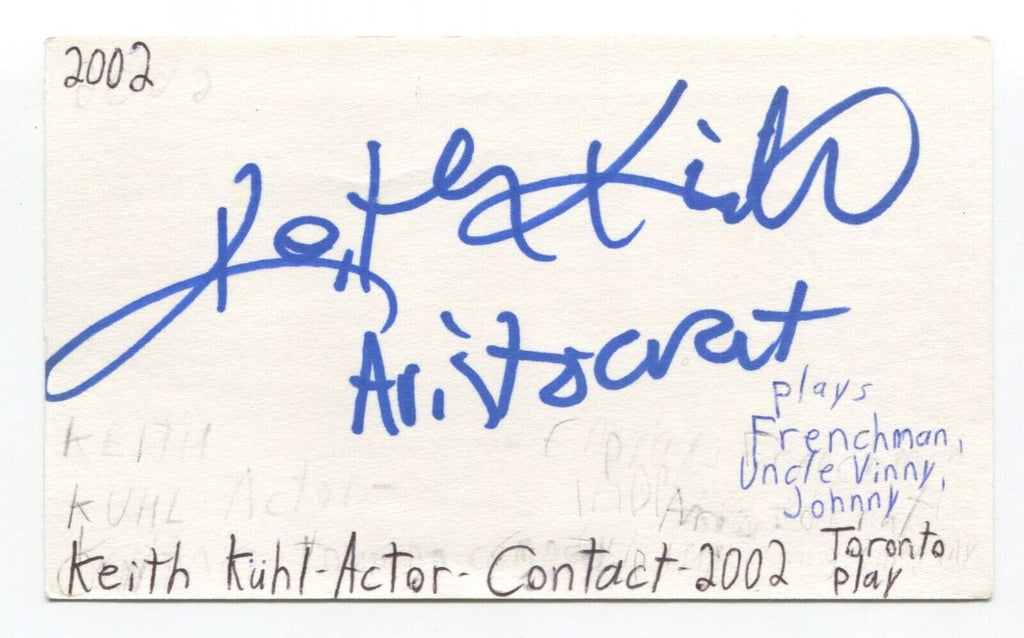 2002
Keith Kühl
Aristocrat
plays
Frenchman,
Uncle Vinny,
Johnny
KEITH
KUHL - Actor -
Keith Kühl - Actor - Contact - 2002
Toronto
play